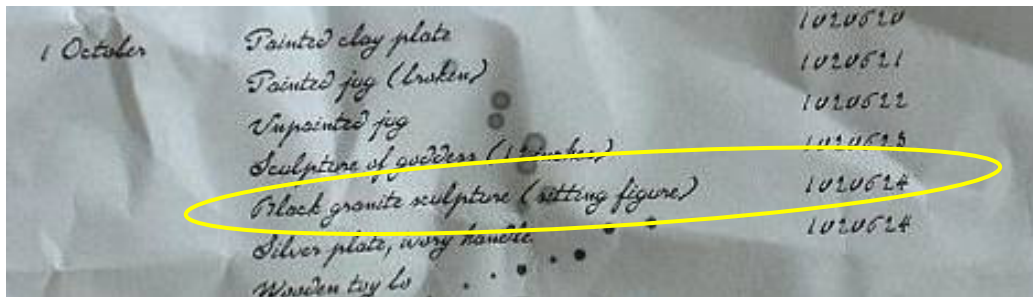 1 October Painted clay plate 1020620
Painted jug (broken) 1020621
Unpainted jug 1020622
Sculpture of goddess (12 inches) 1020623
Black granite sculpture (sitting figure) 1020624
Silver plate, ivory handle 1020624
Wooden toy